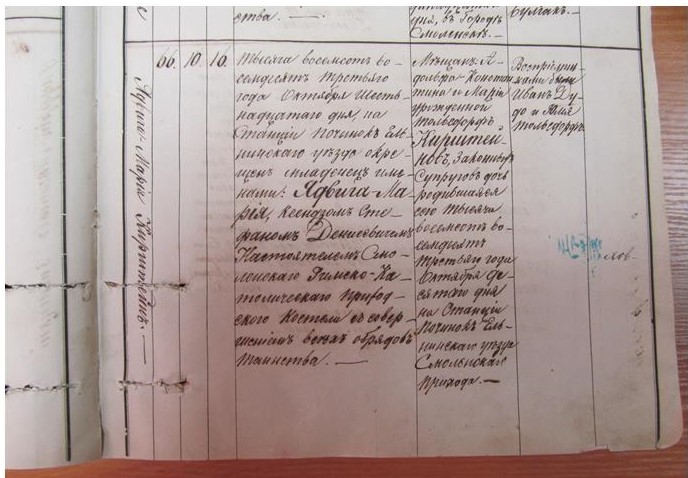 ства. —
дня, въ Городѣ
Смоленскѣ. —
Булгакъ. —
Ядвига-Марія Кирштейнъ. —
66. 10. 16.
Тысяча восемсотъ во-
семдесятъ третьяго
года Октября Шест-
надцатаго дня, на
Станціи Починокъ Ель-
нинскаго уѣзда окре-
щенъ младенецъ име-
нами: Ядвига-Ма-
рія, Ксендзомъ Сте-
фаномъ Денисевичемъ
Настоятелемъ Смо-
ленскаго Римско-Ка-
толическаго Приход-
скаго Костела съ совер-
шеніемъ всѣхъ обрядовъ
таинства. —
Мѣщанъ А-
дольфа-Констан
тина и Маріи
урожденной
Гольсфордфъ
Кирштей-
новъ, законныхъ
Супруговъ дочь
родившаяся
сего тысяча
восемсотъ во-
семдесятъ
третьяго года
Октября де-
сятаго дня
на Станціи
Починокъ Ель-
нинскаго уѣзда
Смоленскаго
прихода. —
Воспріемни-
ками были
Иванъ Ду-
до и
Гольсфордфъ